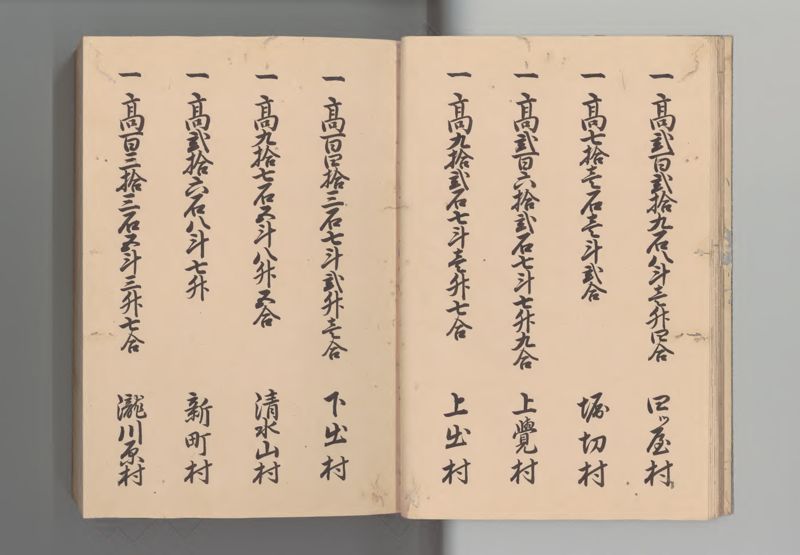 一 高弐百弐拾九石八斗壱升四合 四ッ屋村
一 高七拾壱石壱斗弐合 堀切村
一 高弐百六拾弐石七斗七升九合 上覺村
一 高九拾弐石七斗壱升七合 上出村
一 高百四拾三石七斗弐升壱合 下出村
一 高九拾七石五斗八升五合 清水山村
一 高弐拾六石八斗七升 新町村
一 高百三拾三石五斗三升七合 瀧川原村